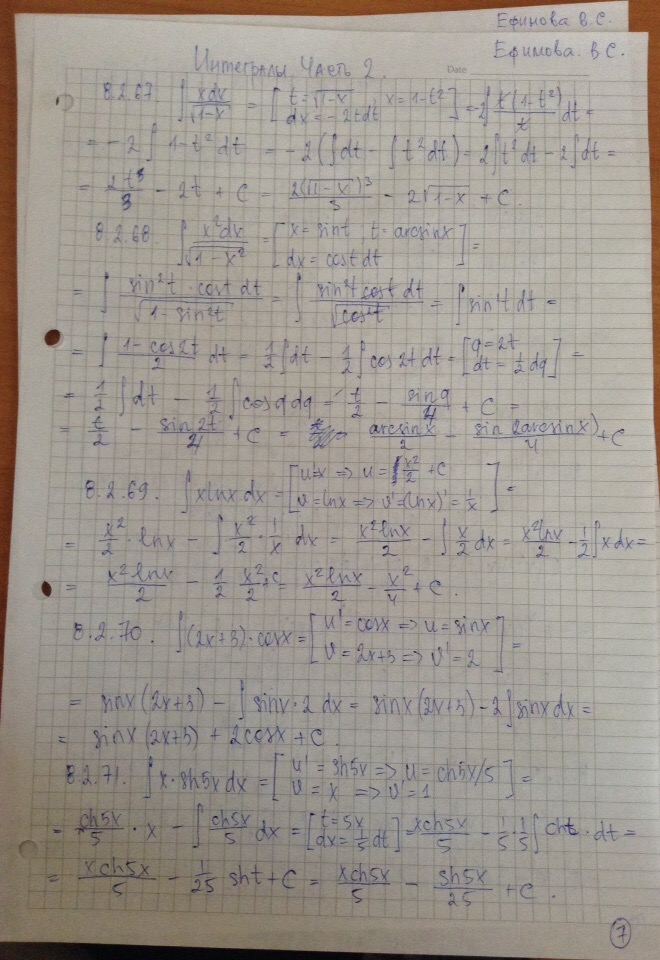 Ефинова В.С.
Ефимова. В С.
Интегралы. Часть 2.
Date
8.2.67. ∫ xdx/√(1-x) = [t=√(1-x), x=1-t² ; dx=-2tdt] = -2∫ t(1-t²)/t dt =
= -2 ∫ 1-t² dt = -2(∫dt - ∫t²dt) = 2∫t²dt - 2∫dt =
= 2t³/3 - 2t + C = 2(√(1-x))³/3 - 2√(1-x) + C.
8.2.68. ∫ x²dx/√(1-x²) = [x=sint t=arcsinx ; dx=costdt] =
= ∫ sin²t·cost dt/√(1-sin²t) = ∫ sin²t cost dt/√(cos²t) = ∫ sin²t dt =
= ∫ (1-cos2t)/2 dt = 1/2∫dt - 1/2∫cos2tdt = [q=2t ; dt=1/2dq] =
= 1/2∫dt - 1/2∫cosqdq = t/2 - sinq/4 + C =
= t/2 - sin2t/4 + C = arcsinx/2 - sin(2arcsinx)/4 + C
8.2.69. ∫xlnxdx = [u'=x => u = x²/2 + C ; v=lnx => v'=(lnx)'=1/x] =
= x²/2 · lnx - ∫ x²/2 · 1/x dx = x²lnx/2 - ∫ x/2 dx = x²lnx/2 - 1/2∫xdx =
= x²lnx/2 - 1/2 x²/2 + C = x²lnx/2 - x²/4 + C.
8.2.70. ∫(2x+3)·cosx = [u'=cosx => u=sinx ; v=2x+3 => v'=2] =
= sinx(2x+3) - ∫sinx·2 dx = sinx(2x+3) - 2∫sinxdx =
= sinx(2x+3) + 2cosx + C.
8.2.71. ∫x·sh5xdx = [u'=sh5x => u=ch5x/5 ; v=x => v'=1] =
= ch5x/5 · x - ∫ ch5x/5 dx = [t=5x ; dx=1/5dt] = xch5x/5 - 1/5·1/5∫cht·dt =
= xch5x/5 - 1/25 sht + C = xch5x/5 - sh5x/25 + C.
7